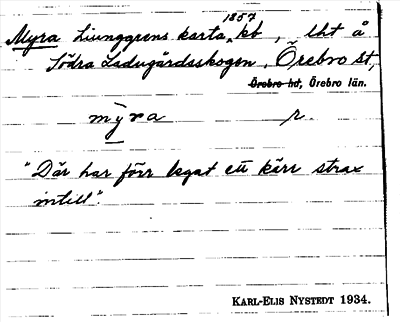 1857
Myra Ljunggrens karta, kb, lht å
Södra Ladugårdsskogen, Örebro st,
Örebro hd, Örebro län.
mỳra r.
"Där har förr legat ett kärr strax
intill".
KARL-ELIS NYSTEDT 1934.